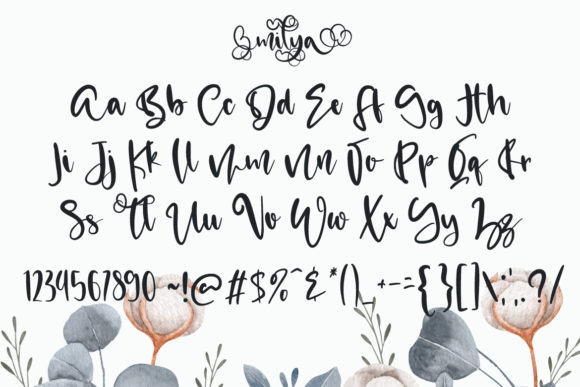 Emilya
Aa Bb Cc Dd Ee Ff Gg Hh
Ii Jj Kk Ll Mm Nn Oo Pp Qq Rr
Ss Tt Uu Vv Ww Xx Yy Zz
1234567890 ~!@#$%^&*()_+-={}[]\;':,.?/